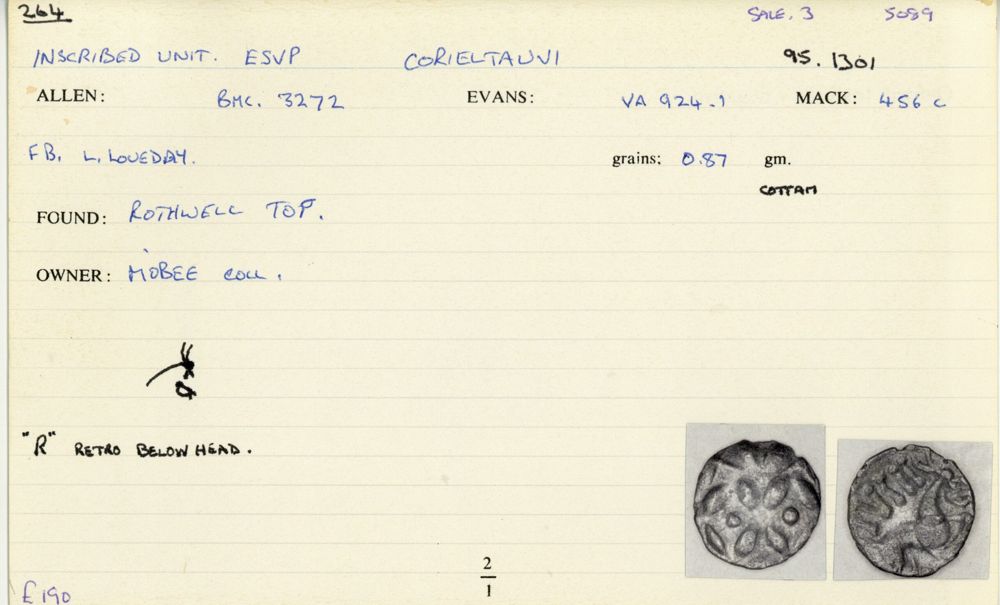 264 SALE. 3 5089
INSCRIBED UNIT. ESVP CORIELTAUVI 95.1301
ALLEN: BMC. 3272 EVANS: VA 924.1 MACK: 456 c
F B. L. LOVEDAY. grains: 0.87 gm.
COTTAM
FOUND: ROTHWELL TOP.
OWNER: MOBEE COLL.
"R" RETRO BELOW HEAD.
2
1
£190